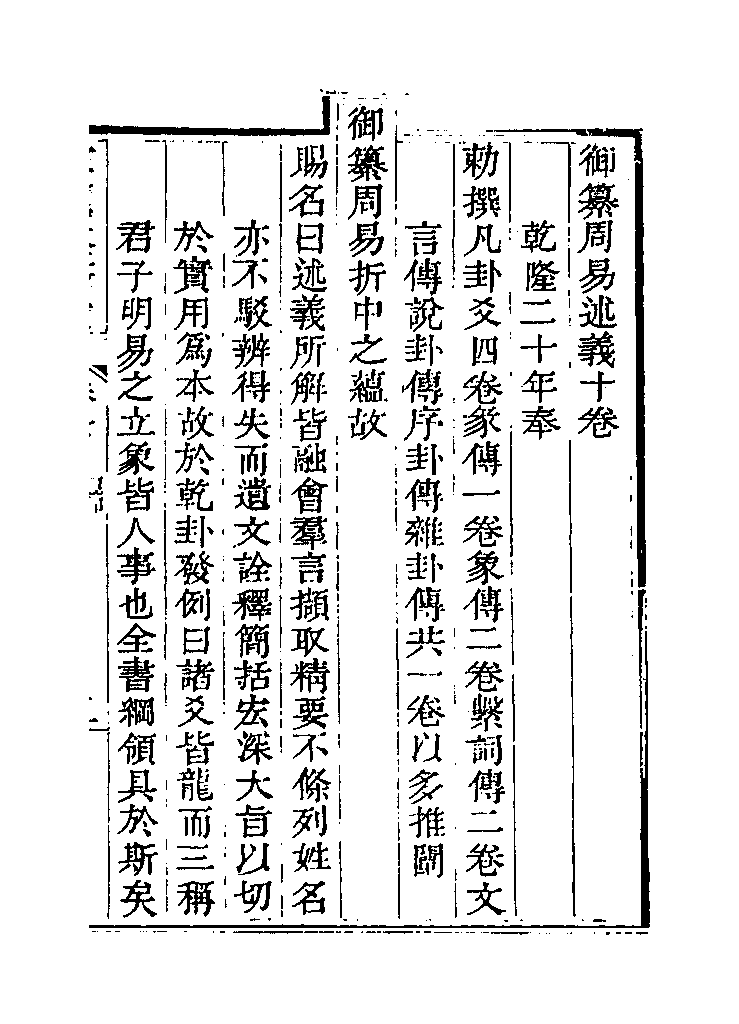 御纂周易述義十卷
乾隆二十年奉
勅撰凡卦爻四卷彖傳一卷象傳二卷繫詞傳二卷文
言傳說卦傳序卦傳雜卦傳共一卷以多推闡
御纂周易折中之蘊故
賜名曰述義所解皆融會羣言擷取精要不條列姓名
亦不駁辨得失而遺文詮釋簡括宏深大旨以切
於實用爲本故於乾卦發例曰諸爻皆龍而三稱
君子明易之立象皆人事也全書綱領具於斯矣